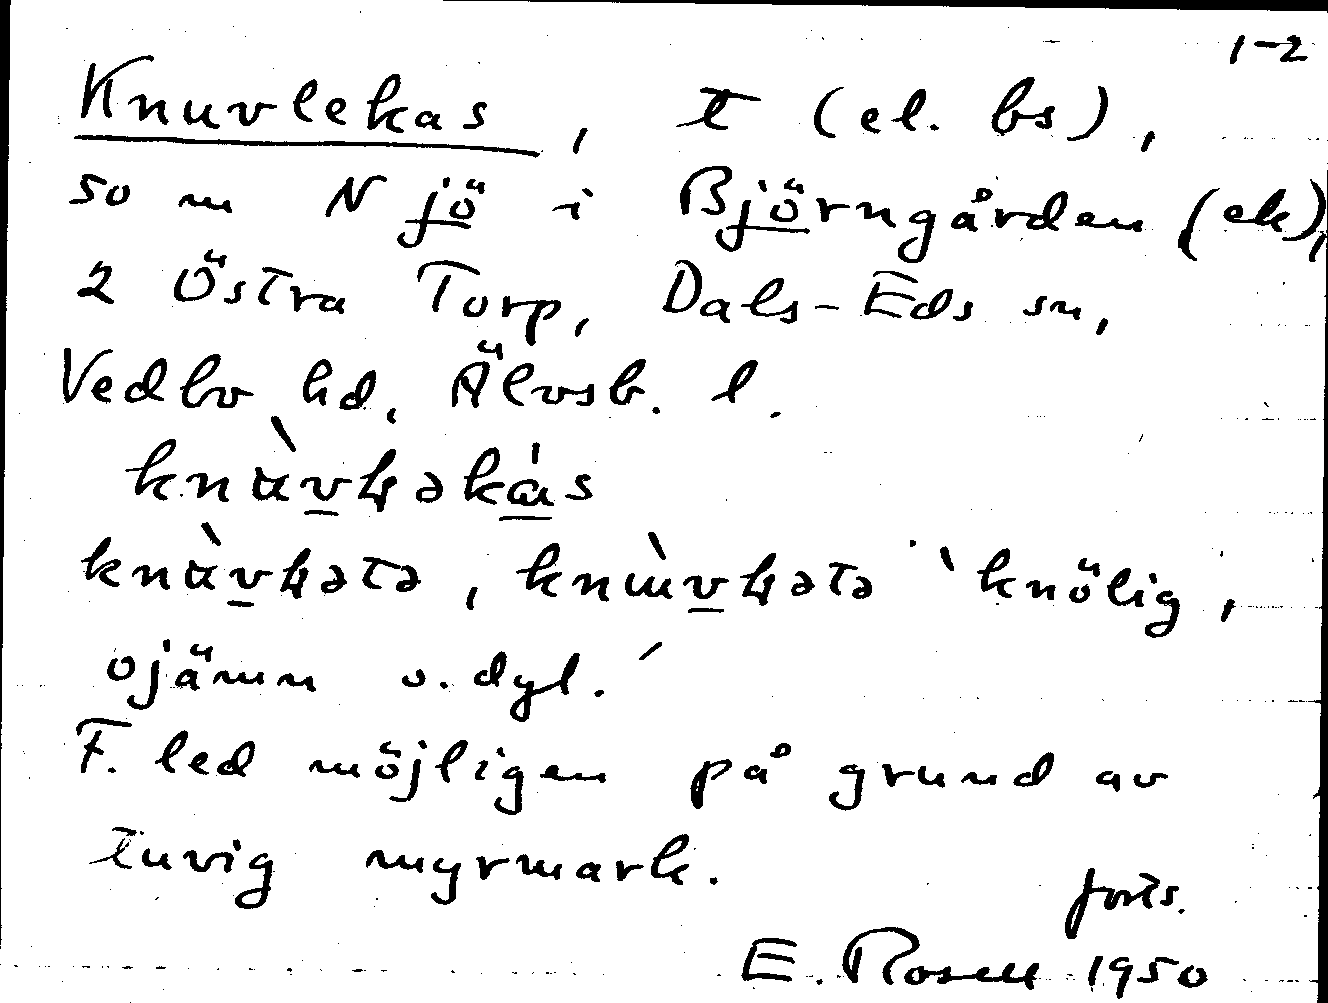 1-2
Knuvlekas, t (el. bs),
so m N jö i Björngården (ek),
2 Östra Torp, Dals-Eds sn,
Vedbo hd, Älvsb. l.
F. led möjligen på grund av
tuvig myrmark.
ojämn o. dyl.´
forts.
E. Rosell 1950